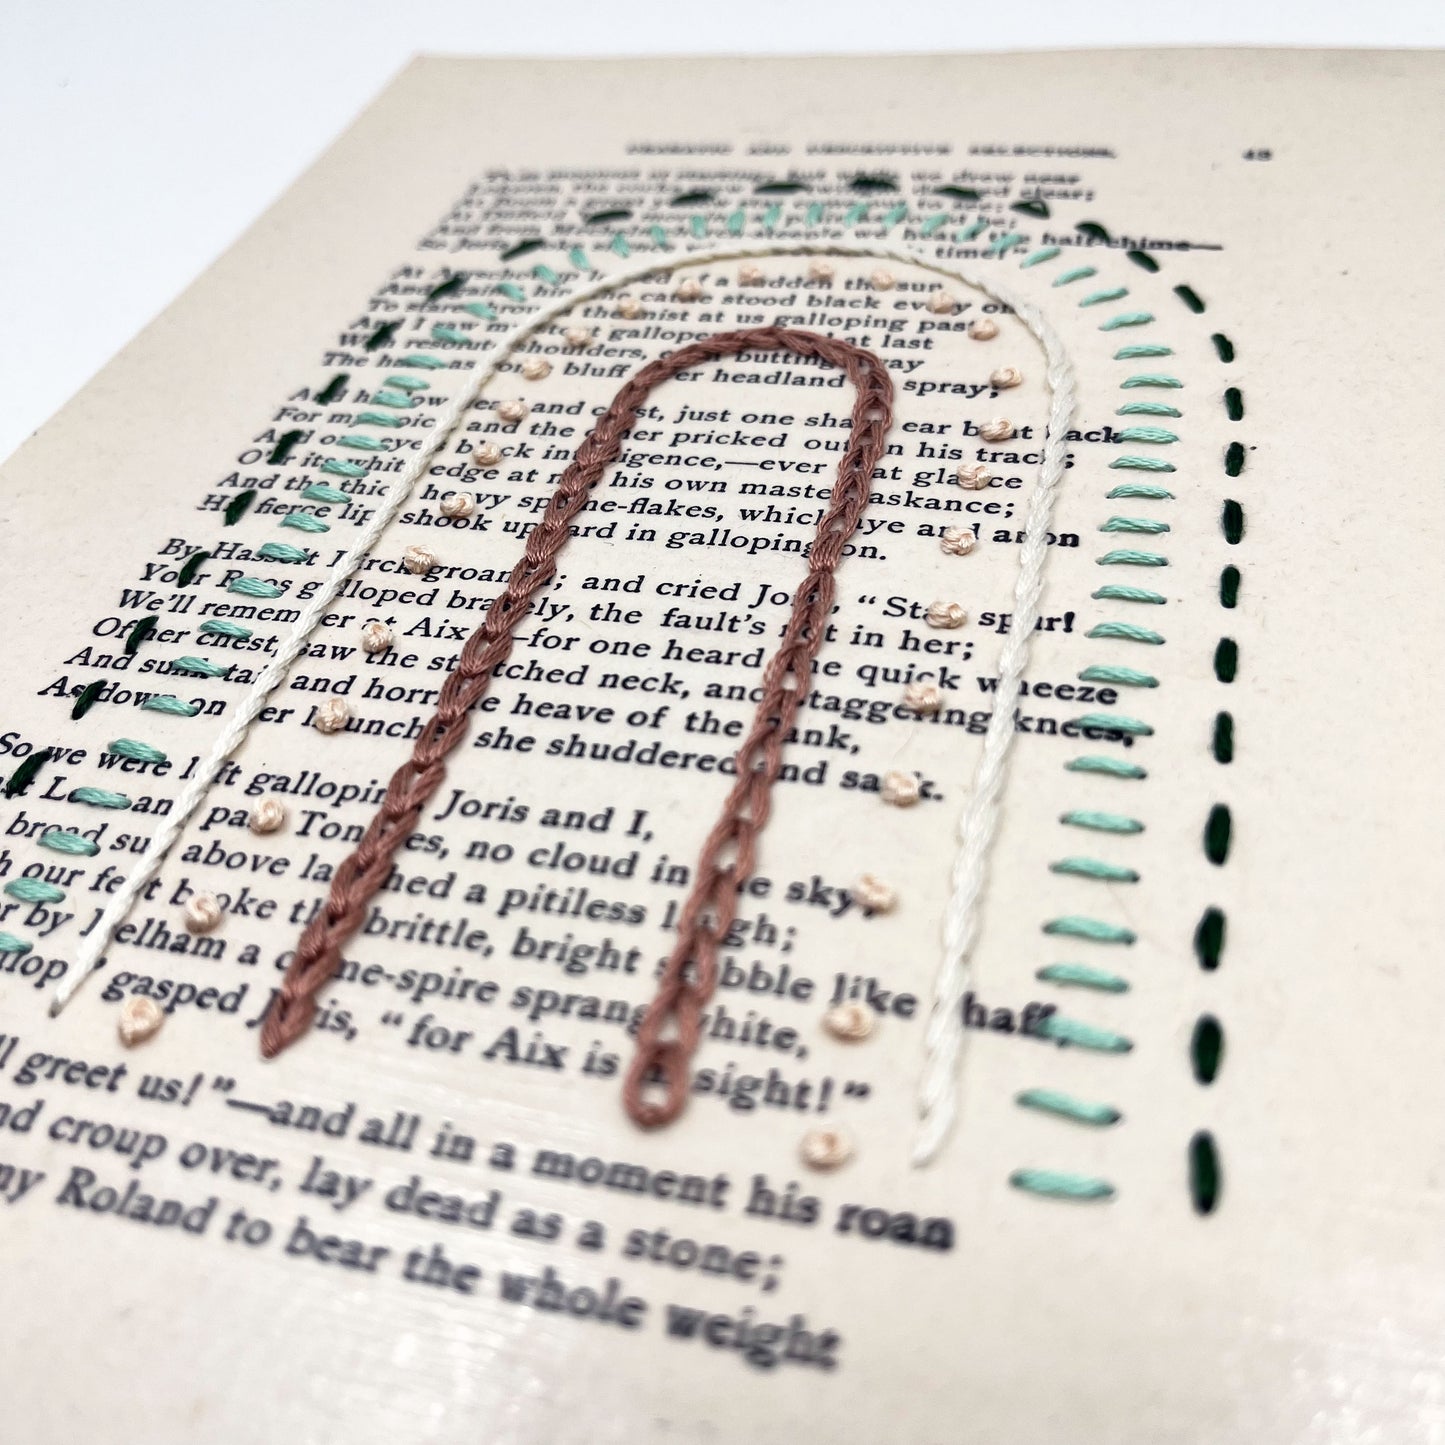 DRAMATIC AND DESCRIPTIVE SELECTIONS. 43
while we drew near
clear;
a great yellow star came out to see;
be;
And from steeple we heard the half-chime—
So Joris broke silence with time!"
At up leaped of a sudden the sun,
And against him the cattle stood black every one
To stare through the mist at us galloping past
And I saw my stout galloper at last
With resolute shoulders, each butting away
The haze as some bluff river headland its spray;
And his low head and crest, just one sharp ear bent back
For my voice, and the other pricked out on his track;
And one eye's black intelligence,—ever that glance
O'er its white edge at me, his own master, askance;
And the thick heavy spume-flakes, which aye and anon
His fierce lips shook upward in galloping on.
By Hasselt Dirck groaned; and cried Joris, "Stay spur!
Your Roos galloped bravely, the fault's not in her;
We'll remember at Aix"—for one heard the quick wheeze
Of her chest, saw the stretched neck, and staggering knees,
And sunk tail, and horrible heave of the flank,
As down on her haunches she shuddered and sank.
So we were left galloping, Joris and I,
past Looz and past Tongres, no cloud in the sky;
broad sun above laughed a pitiless laugh;
our feet broke the brittle, bright stubble like chaff;
by Dalhem a dome-spire sprang white,
gasped Joris, "for Aix is in sight!"
greet us!"—and all in a moment his roan
and croup over, lay dead as a stone;
my Roland to bear the whole weight